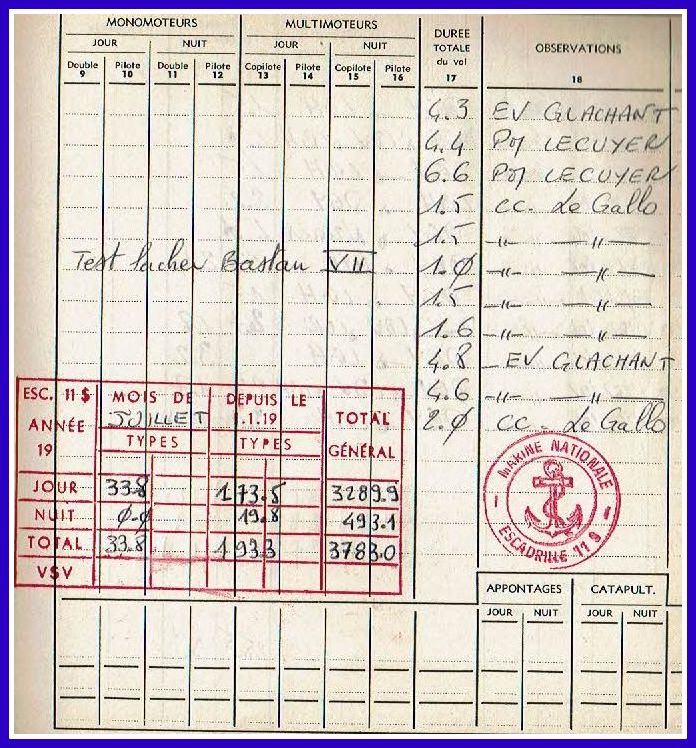 MONOMOTEURS MULTIMOTEURS DUREE TOTALE du vol OBSERVATIONS
JOUR NUIT JOUR NUIT
Double 9 Pilote 10 Double 11 Pilote 12 Copilote 13 Pilote 14 Copilote 15 Pilote 16 17 18
4.3 EV GLACHANT
4.4 LECUYER
6.6 LECUYER
1.5 CC. Le Gallo
1.5 -"- -"-
Test lacher Bastan VII 1.0 -"- -"-
1.5 -"- -"-
1.6 -"- -"-
4.8 EV GLACHANT
4.6 -"- -"-
2.0 CC. Le Gallo
ESC. 11 S MOIS DE JUILLET DEPUIS LE 1.1.19 TOTAL GÉNÉRAL
ANNÉE 19 TYPES TYPES
JOUR 33.8 173.5 3289.9
NUIT 0.0 19.8 493.1
TOTAL 33.8 193.3 3783.0
VSV
MARINE NATIONALE
ESCADRILLE 11 S
APPONTAGES CATAPULT.
JOUR NUIT JOUR NUIT